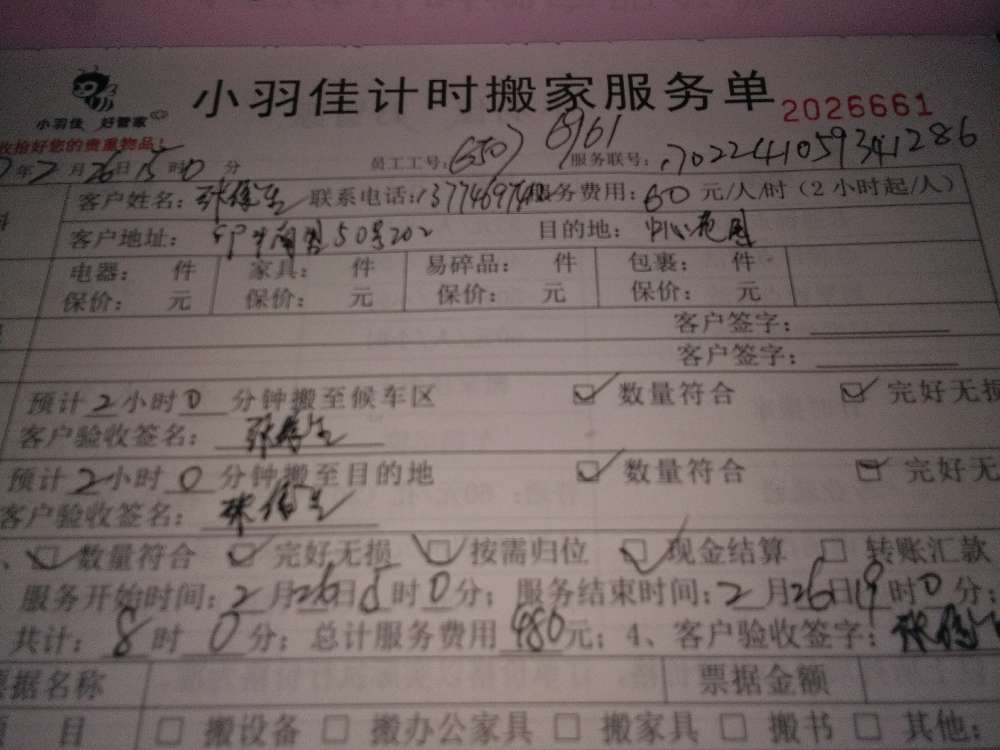 小羽佳计时搬家服务单 2026661
小羽佳 好管家
收拾好您的贵重物品!
年2月26日15时0分 员工工号: 6507 6961 服务联号: 1702241059341286
客户姓名: 联系电话: 服务费用: 60 元/人/时(2小时起/人)
客户地址: 50号202 目的地: 中心花园
电器: 件 家具: 件 易碎品: 件 包裹: 件
保价: 元 保价: 元 保价: 元 保价: 元
客户签字:
客户签字:
预计2小时0分钟搬至候车区 数量符合 完好无损
客户验收签名:
预计2小时0分钟搬至目的地 数量符合 完好无
客户验收签名:
数量符合 完好无损 按需归位 现金结算 转账汇款
服务开始时间:2月26日15时0分; 服务结束时间:2月26日19时0分;
共计:8时0分; 总计服务费用480元; 4、客户验收签字:
票据名称 票据金额
项目 搬设备 搬办公家具 搬家具 搬书 其他: